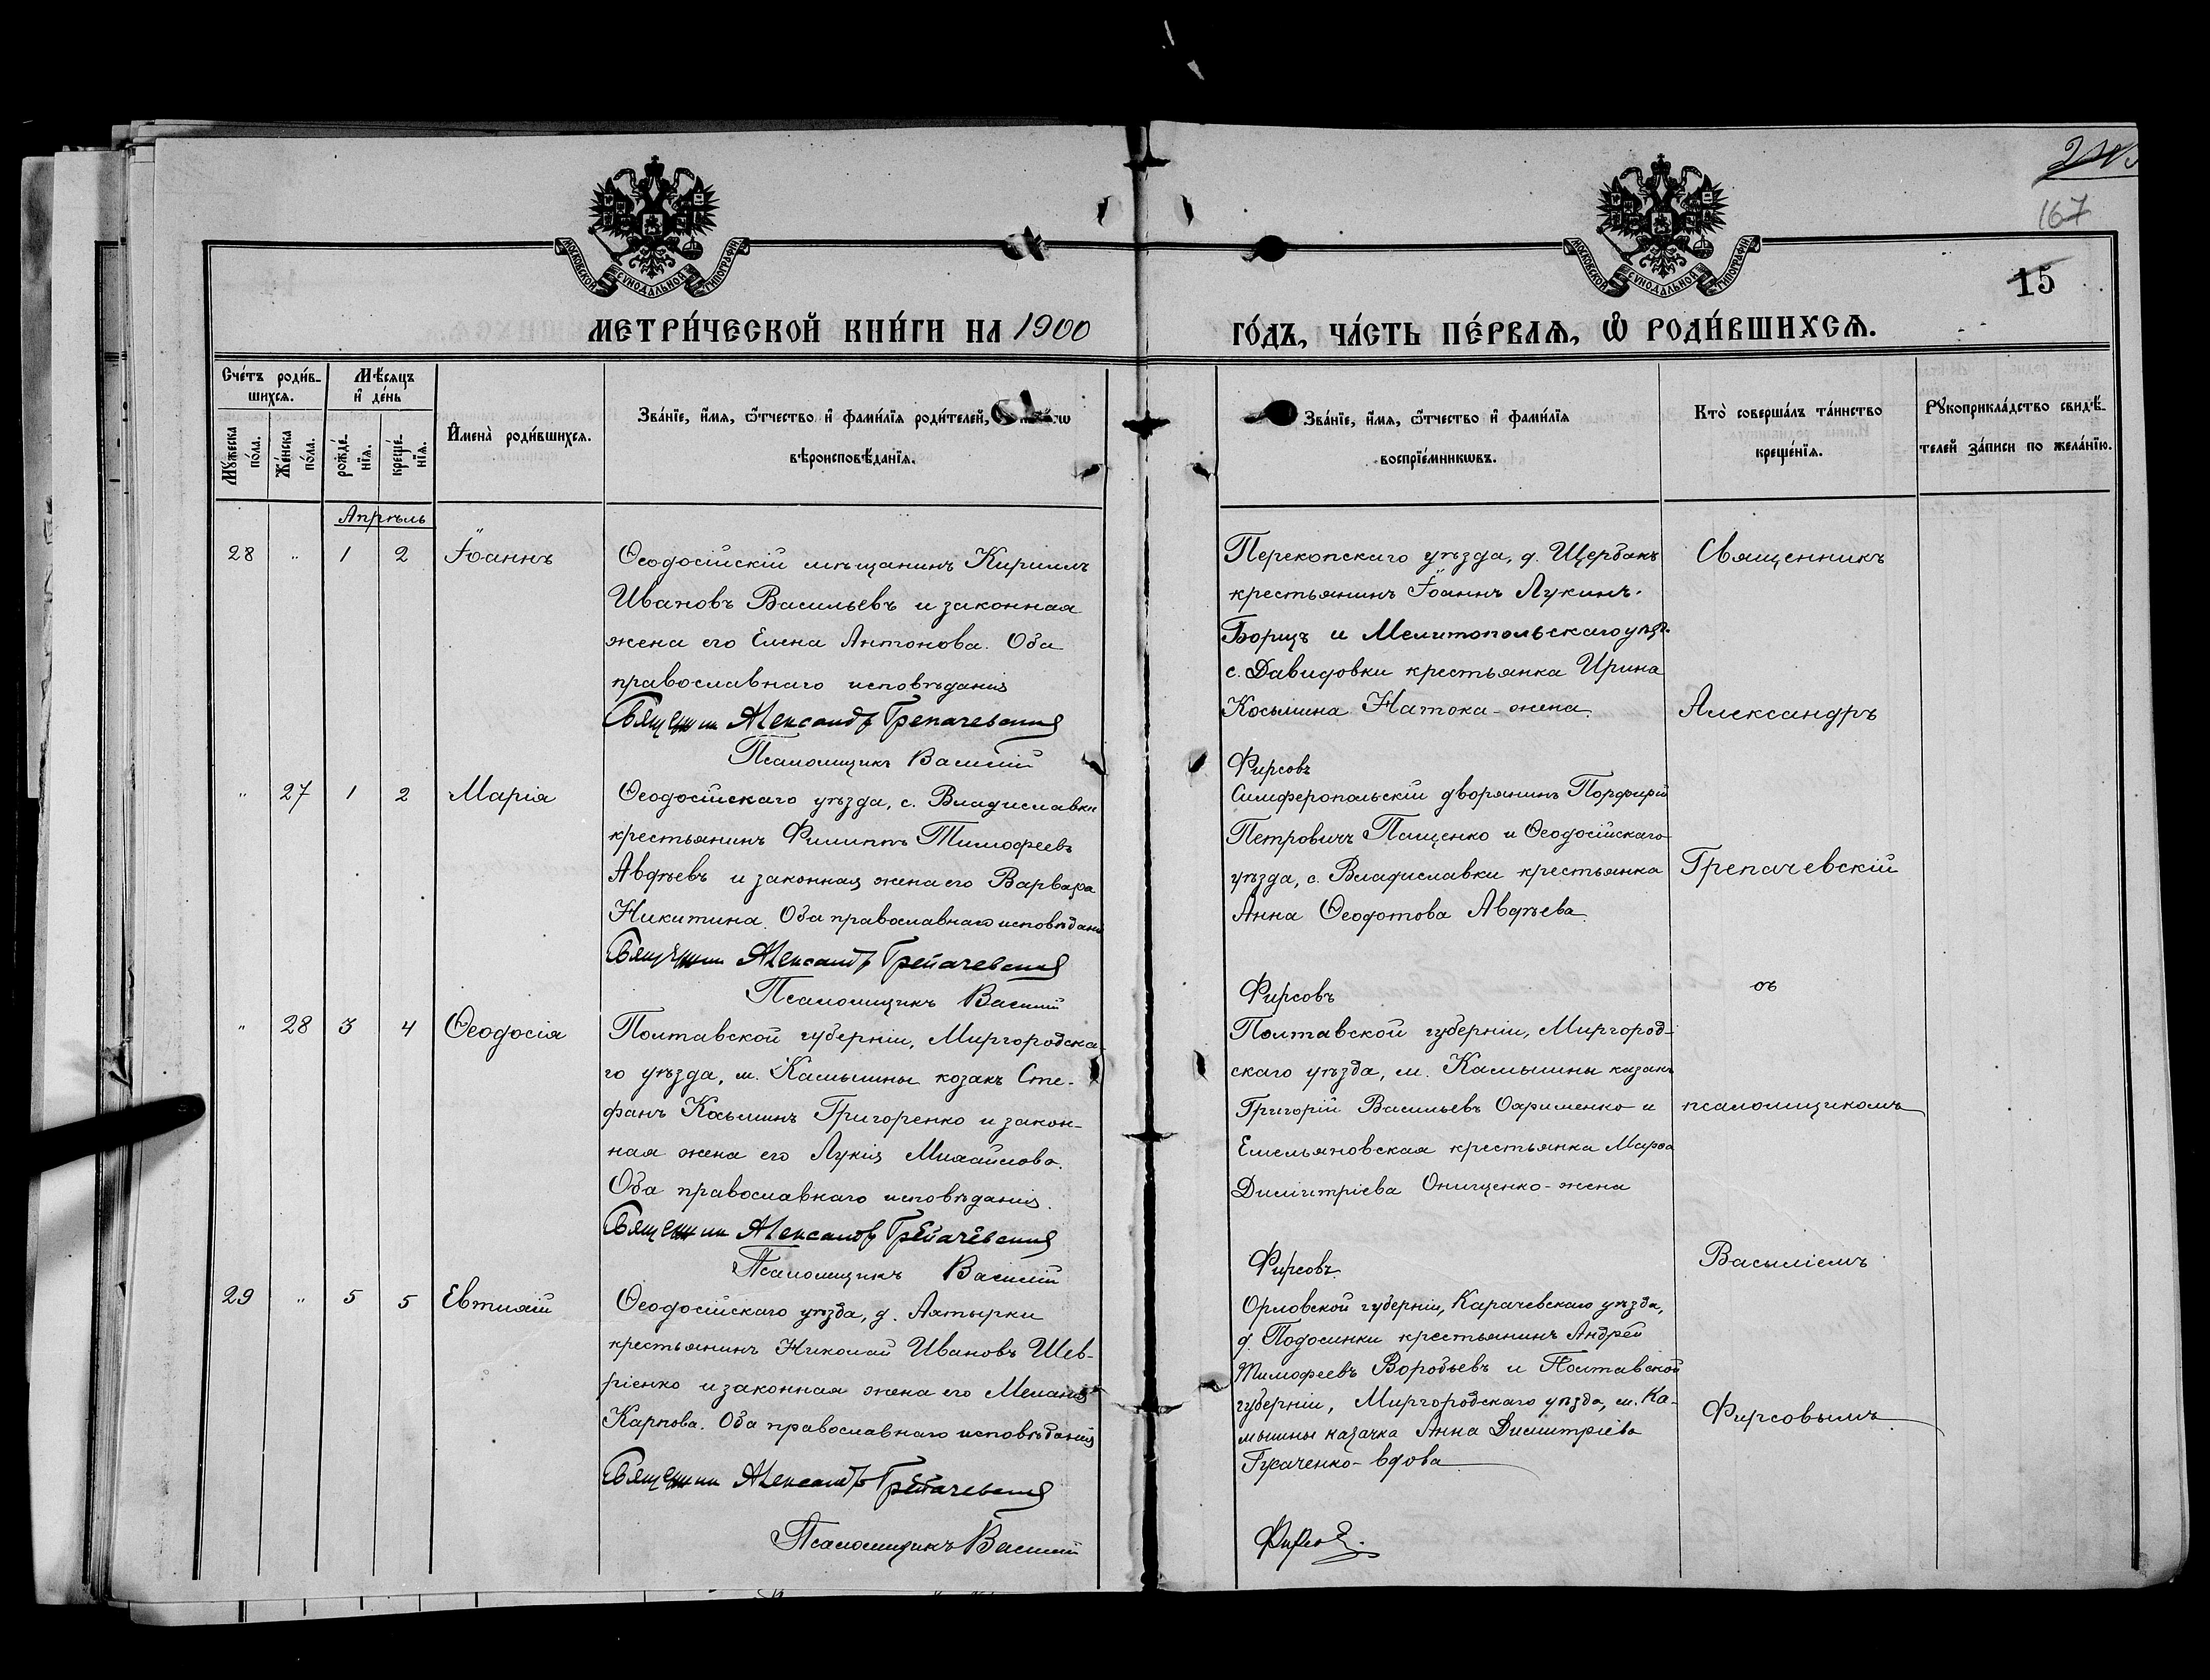 167
15
МОСКОВСКОЙ СѴНОДАЛЬНОЙ ТИПОГРАФІИ
МОСКОВСКОЙ СѴНОДАЛЬНОЙ ТИПОГРАФІИ
МЕТРИ́ЧЕСКОЙ КНИ́ГИ НА 1900
ГО́ДЪ, ЧА́СТЬ ПЕ́РВАѦ, Ѿ РОДИ́ВШИХСѦ.
Сче́тъ роди́в-
шихсѧ.
Мѣ́сѧцъ
и҆ де́нь
Мꙋ́жеска
по́ла.
Же́нска
по́ла.
рожде́-
нїѧ.
креще́-
нїѧ.
И҆мена̀ роди́вшихсѧ.
Зва́нїе, и҆́мѧ, ѻ҆́тчество и҆ фами́лїѧ роди́телей,
вѣроисповѣ́данїѧ.
Зва́нїе, и҆́мѧ, ѻ҆́тчество и҆ фами́лїѧ
воспрїе́мникѡвъ.
Кто̀ соверша́лъ та́инство
креще́нїѧ.
Рꙋкоприкла́дство свидѣ́-
телей за́писи по жела́нїю.
Апрѣль
28 " 1 2 Іоаннъ
Ѳеодосійскій мѣщанинъ Кириллъ
Ивановъ Васильевъ и законная
жена его Елена Антонова. Оба
православнаго исповѣданія
Священник Александр Грепачевский
Псаломщикъ Василій
Перекопскаго уѣзда, д. Щербакъ
крестьянинъ Іоаннъ Лукинъ
Борщъ и Мелитопольскаго уѣз.
с. Давидовки крестьянка Ирина
Косьмина Натока - жена.
Фирсовъ
Священникъ
Александръ
Грепачевскій
съ
псаломщикомъ
Василіемъ
Фирсовымъ
" 27 1 2 Марія
Ѳеодосійскаго уѣзда, с. Владиславки
крестьянинъ Филиппъ Тимофеевъ
Авдѣевъ и законная жена его Варвара
Никитина. Оба православнаго исповѣдані
Священник Александр Грепачевский
Псаломщикъ Василій
Симферопольскій дворянинъ Порфирій
Петровичъ Пащенко и Ѳеодосійскаго
уѣзда, с. Владиславки крестьянка
Анна Ѳеодотова Авдѣева
Фирсовъ
" 28 3 4 Ѳеодосія
Полтавской губерніи, Миргородска-
го уѣзда, м. Камышны козакъ Сте-
фанъ Косьминъ Григоренко и закон-
ная жена его Лукія Михайлова.
Оба православнаго исповѣданія.
Священник Александр Грепачевский
Псаломщикъ Василій
Полтавской губерніи, Миргород-
скаго уѣзда, м. Камышны казакъ
Григорій Васильевъ Охрименко и
Емельяновская крестьянка Марѳа
Димитріева Онищенко - жена
Фирсовъ
29 " 5 5 Евтихій
Ѳеодосійскаго уѣзда, д. Ахтырки
крестьянинъ Николай Ивановъ Шев-
ріенко и законная жена его Меланія
Карпова. Оба православнаго исповѣданія
Священник Александр Грепачевский
Псаломщикъ Василій
Орловской губерніи, Карачевскаго уѣзда,
д. Подосинки крестьянинъ Андрей
Тимофеевъ Воробьевъ и Полтавской
губерніи, Миргородскаго уѣзда, м. Ка-
мышны казачка Анна Димитріева
Гусаченко - вдова
Фирсов.